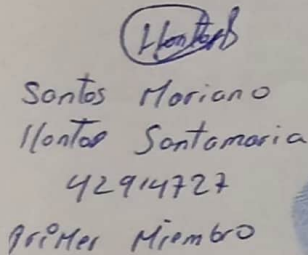 Santos Mariano
Llontop Santamaria
42914727
Primer Miembro